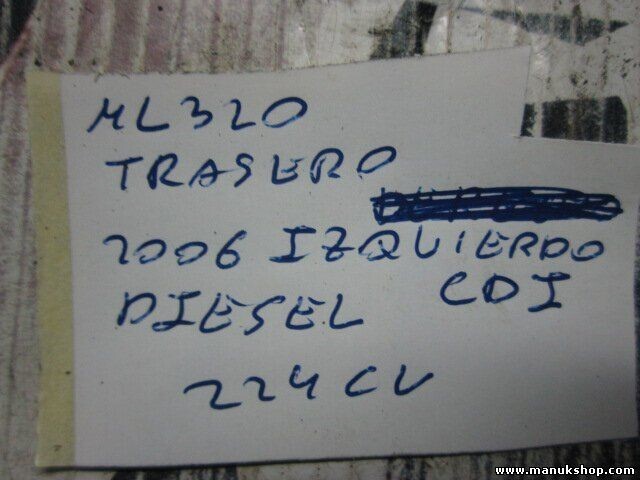 ML320
TRASERO
2006 IZQUIERDO
DIESEL CDI
224CV
www.manukshop.com